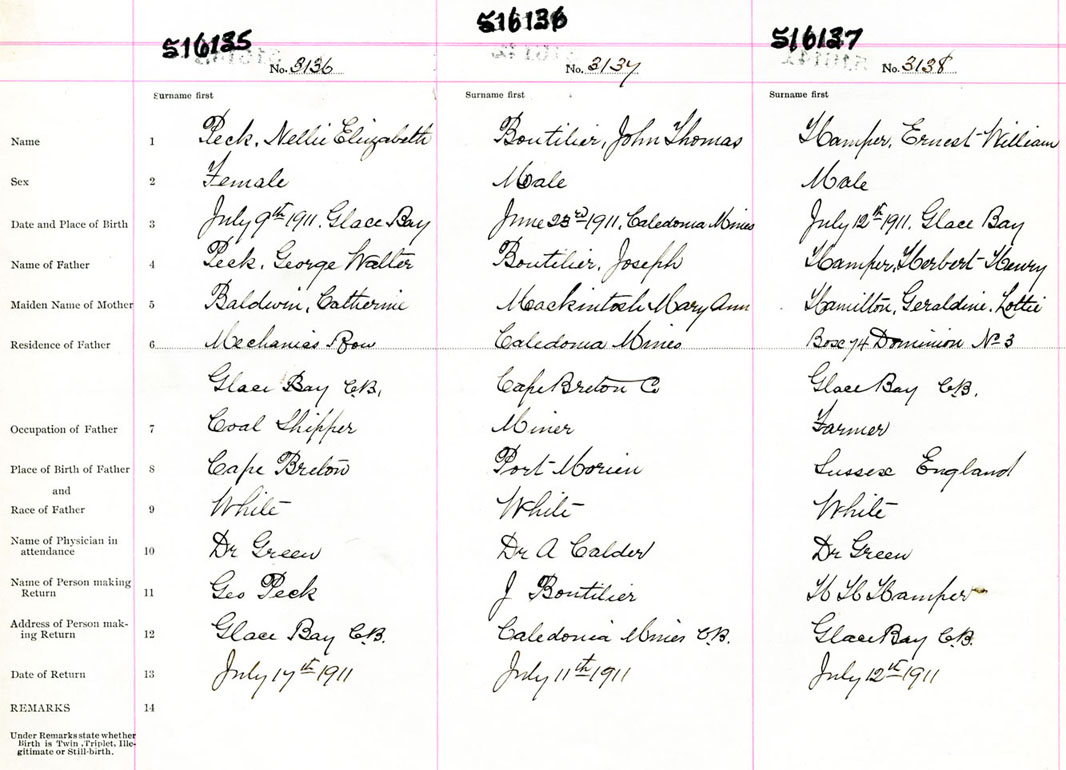 516135 516136 516137
No. 3136 No. 3137 No. 3138
Surname first Surname first Surname first
Name 1 Peck, Nellie Elizabeth Boutilier, John Thomas Hamper, Ernest William
Sex 2 Female Male Male
Date and Place of Birth 3 July 9th 1911. Glace Bay June 23rd 1911. Caledonia Mines July 12th 1911. Glace Bay
Name of Father 4 Peck, George Walter Boutilier, Joseph Hamper, Herbert Henry
Maiden Name of Mother 5 Baldwin, Catherine Mackintosh Mary Ann Hamilton, Geraldine, Lottie
Residence of Father 6 Mechanics Row Caledonia Mines Box 74 Dominion No 3
Glace Bay C.B. Cape Breton Co Glace Bay C.B.
Occupation of Father 7 Coal Shipper Miner Farmer
Place of Birth of Father 8 Cape Breton Port Morien Sussex England
and
Race of Father 9 White White White
Name of Physician in
attendance 10 Dr Green Dr A Calder Dr Green
Name of Person making
Return 11 Geo Peck J Boutilier H H Hamper
Address of Person mak-
ing Return 12 Glace Bay C.B. Caledonia Mines C.B. Glace Bay C.B.
Date of Return 13 July 17th 1911 July 11th 1911 July 12th 1911
REMARKS 14
Under Remarks state whether
Birth is Twin, Triplet, Ille-
gitimate or Still-birth.